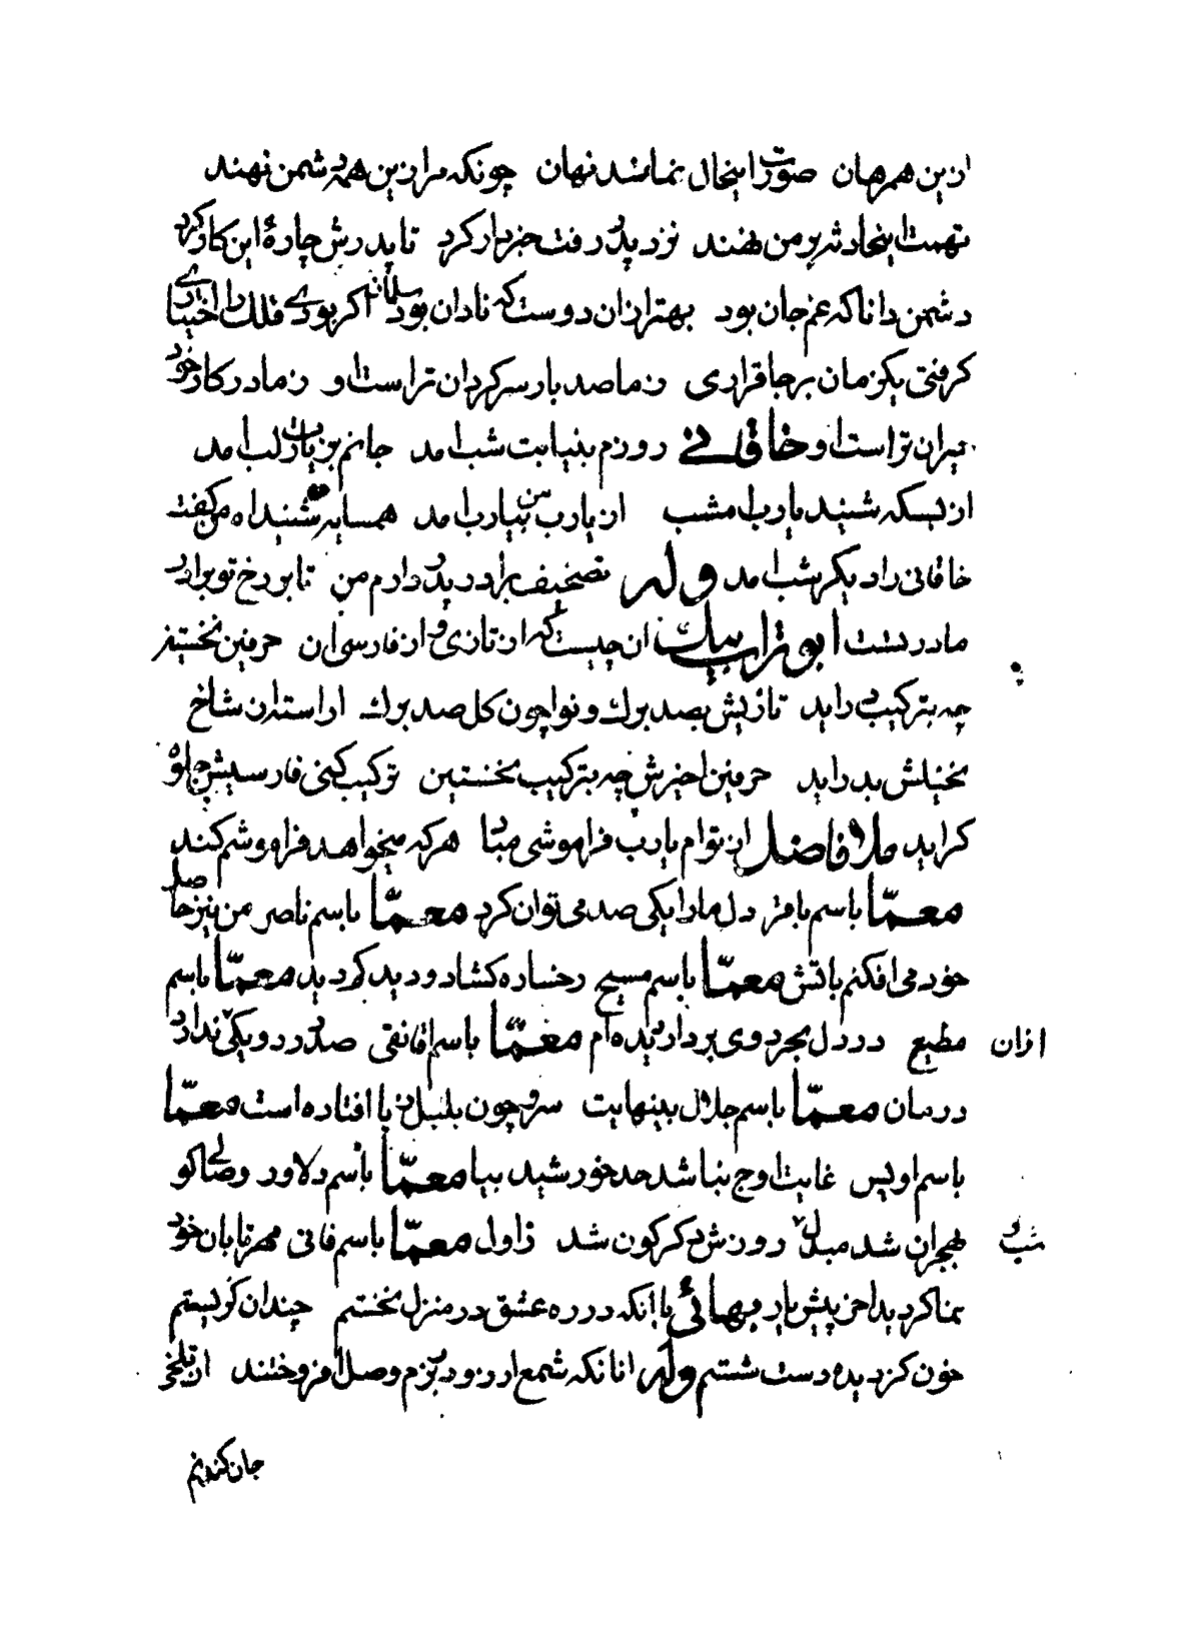 ازین همرهان صورت اینحال نماند نهان چونکه مرا زین همه دشمن نهند
تهمت اینحادثه بر من نهند نزد پدر رفت خبردار کرد تا پدرش چارهٔ این کار کرد
دشمن دانا که غم جان بود بهتر ازان دوست که نادان بود سلمان اگر بودی فلک را اختیاری
گرفتی یکزمان بر جا قراری ز ما صد بار سرگردان تر است او ز ما در کار خود
حیران تر است او خاقانی روزم بنیابت شب امد جانم بزیارت لب امد
از بسکه شنید یارب امشب از یارب من بیارب امد همسایه شنید اه من گفت
خاقانی را دیگر شب امد وله تصحیف برادر پدر دارم من تا بر رخ تو برادر
مادر تست ابو تراب بیک ان چیست که ان تازی و ان فارسی ان حرفین نخستین
چه بترکیب دراید تازیش بصد برک و نوا چون کل صد برک اراسته از شاخ
نخیلش بدراید حرفین اخیرش چه بترکیب نخستین ترکیب کنی فارسیش جلوه
کر اید ملا فاضل از توام یارب فراموشی مباد هر که میخواهد فراموشم کند
معمّا باسم باقر دل ما را یکی صد می توان کرد معمّا باسم ناصر من نیز حاصل
خود می افکنم باتش معمّا باسم مسیح رخساره کشاد و دید کردید معمّا باسم
مطیع درد دل بجر دوی بردار دیده ام معمّا باسم اقا نقی صد درد و یکی ندارد ازان
درمان معمّا باسم جلال بینهایت سرو چون بلبل ز پا افتاده است معمّا
باسم اویس غایت اوج نباشد حد خورشید بیا معمّا باسم دلاور وصالی کو
بهجران شد مبدل روزش دکرکون شد ز اول معمّا باسم فانی مهر تابان خود شب و
نما کردید اخر پیش یار بهائی با انکه در ره عشق در منزل نخستم چندان کریستم
خون کز دیده دست شستم وله انانکه شمع ارزو در بزم وصل افروختند از تلخی
جان کندنم